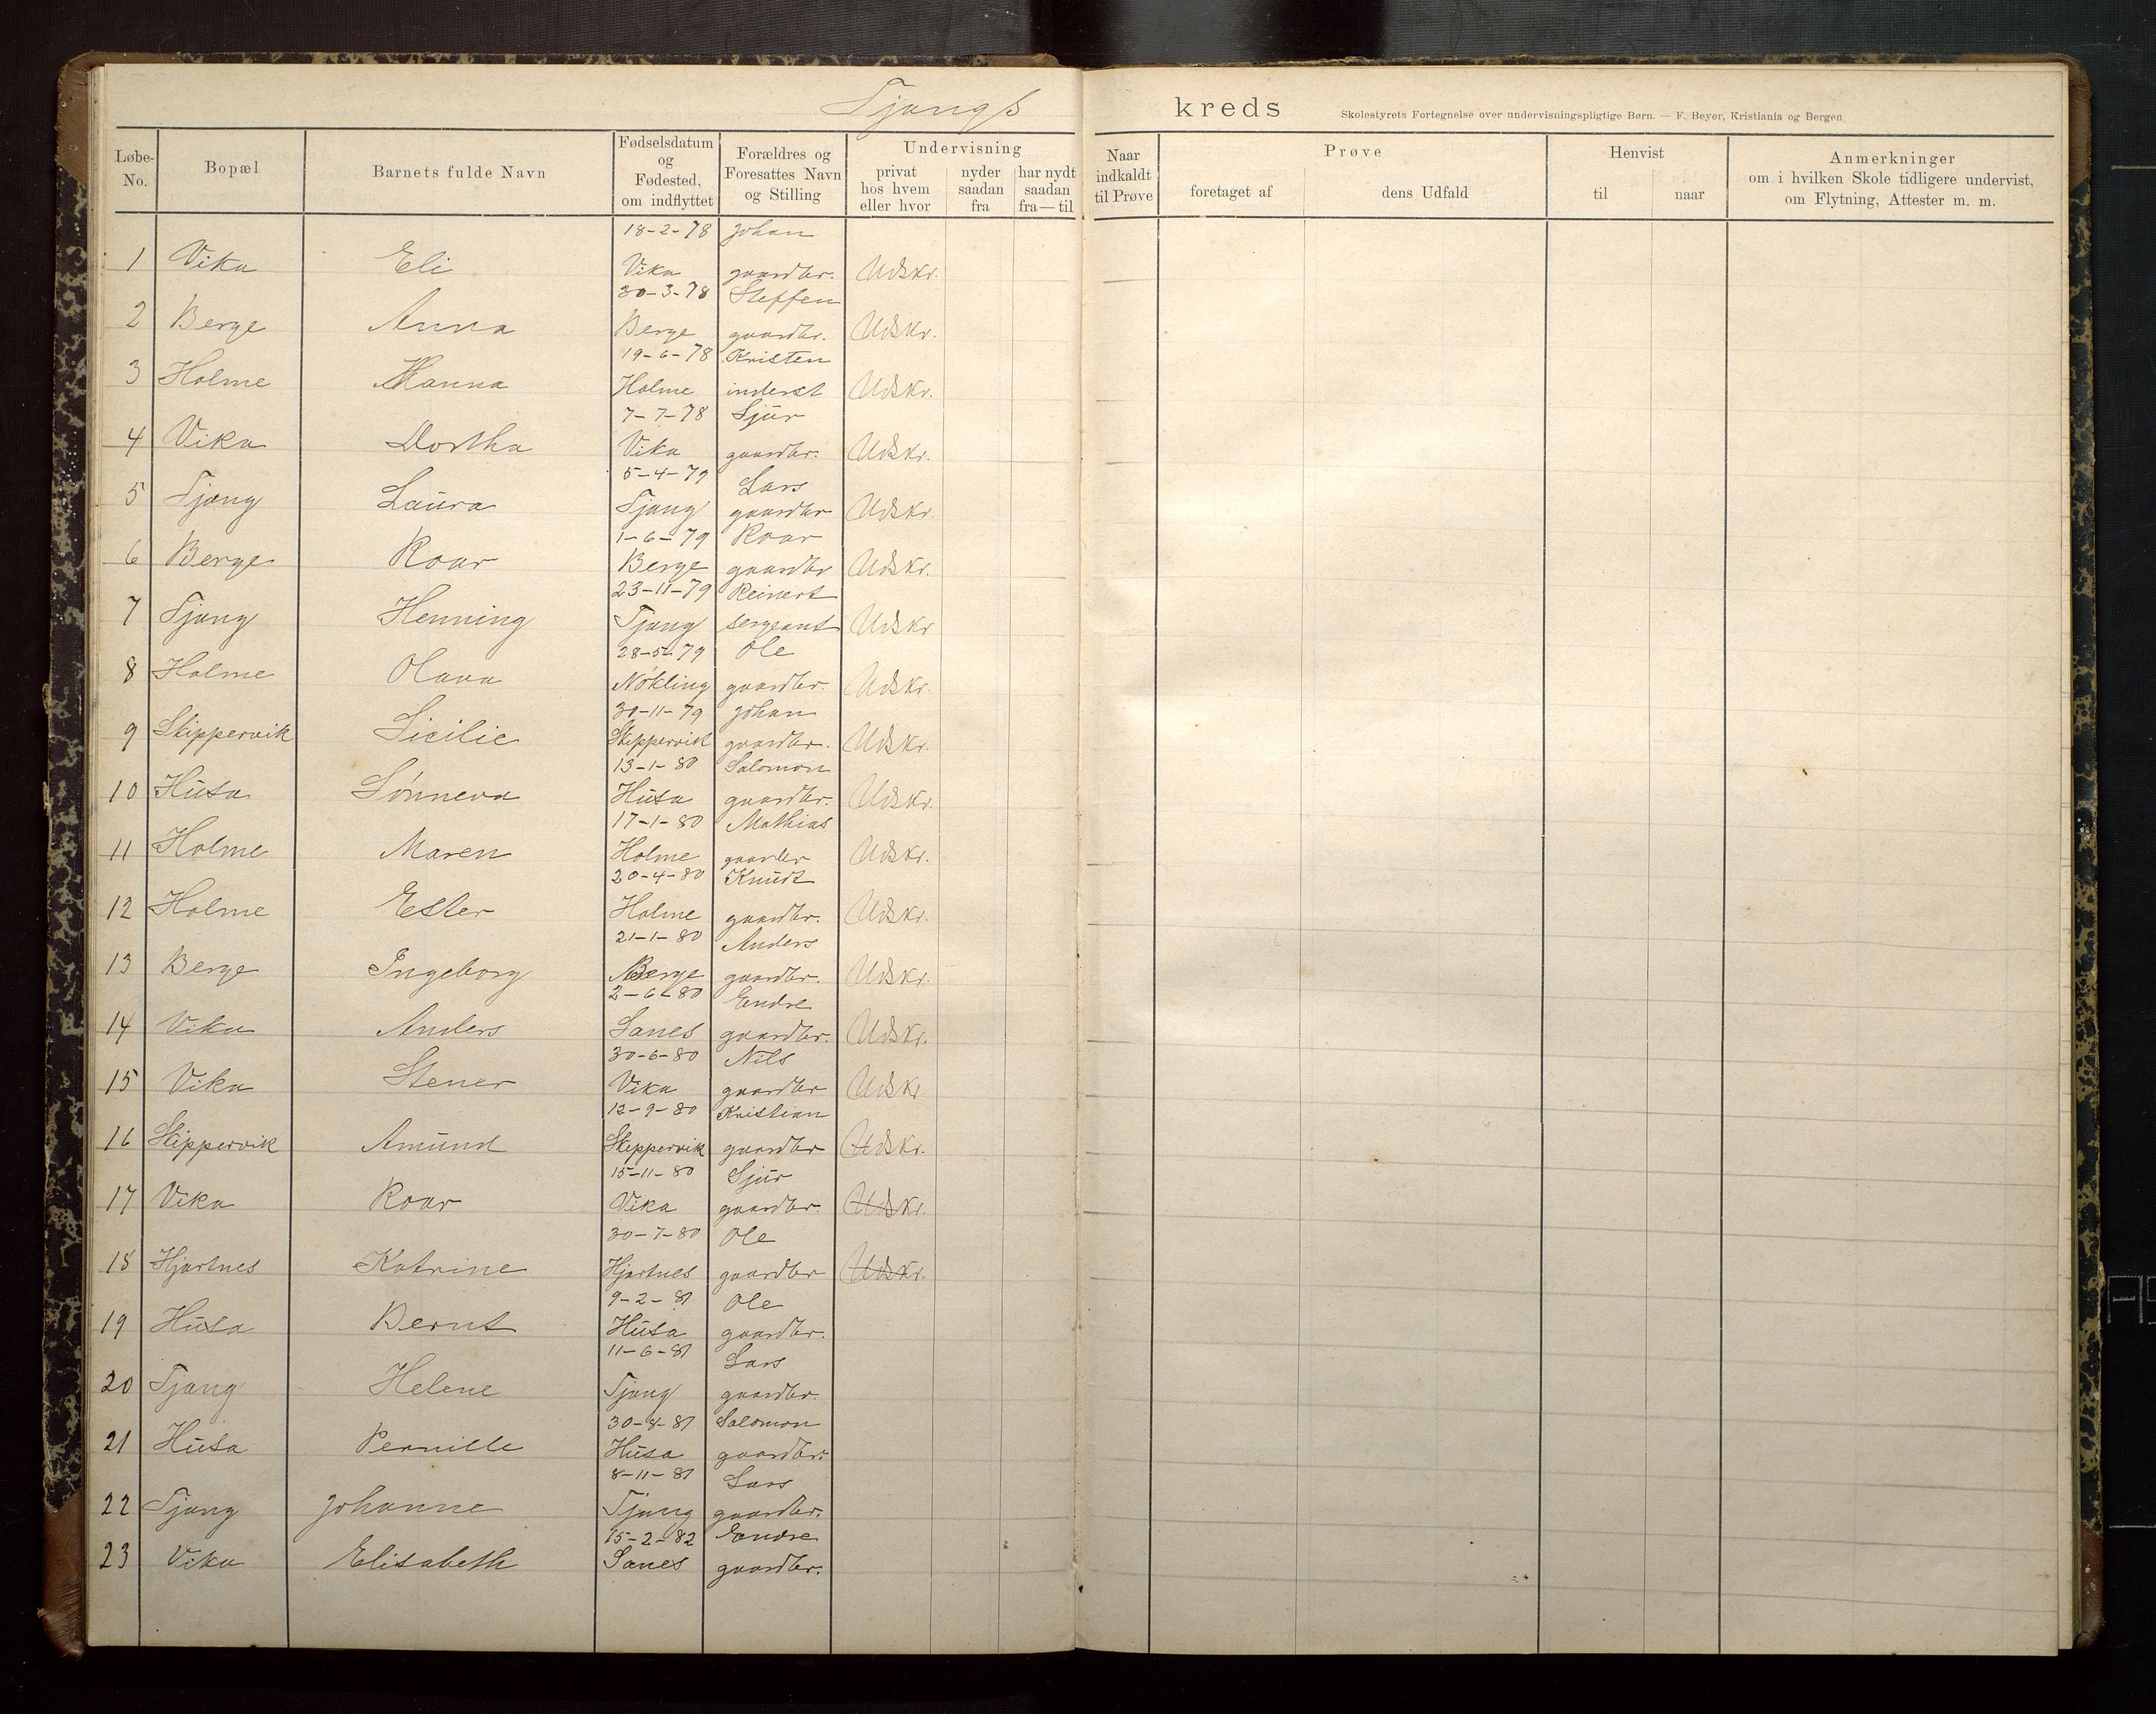 Tjongs kreds
Skolestyrets Fortegnelse over undervisningspligtige Børn. — F. Beyer, Kristiania og Bergen
Løbe-No. Bopæl Barnets fulde Navn Fødselsdatum og Fødested, om indflyttet Forældres og Foresattes Navn og Stilling Undervisning privat hos hvem eller hvor nyder saadan fra har nydt saadan fra—til Naar indkaldt til Prøve Prøve foretaget af dens Udfald Henvist til naar Anmerkninger om i hvilken Skole tidligere undervist, om Flytning, Attester m. m.
18-2-78 Johan
1 Vika Eli Vika gaardbr. Udskr.
30-3-78 Steffen
2 Berge Anna Berge gaardbr. Udskr.
19-6-78 Kristen
3 Holme Hanna Holme inderst Udskr.
7-7-78 Sjur
4 Vika Dortha Vika gaardbr. Udskr.
5-4-79 Lars
5 Tjong Laura Tjong gaardbr Udskr.
1-6-79 Roar
6 Berge Roar Berge gaardbr Udskr.
23-11-79 Reinert
7 Tjong Henning Tjong sergeant Udskr
28-5-79 Ole
8 Holme Olava Nökling gaardbr. Udskr.
30-11-79 Johan
9 Skippervik Sicilie Skippervik gaardbr. Udskr.
13-1-80 Salomon
10 Husa Sönneva Husa gaardbr. Udskr.
17-1-80 Mathias
11 Holme Maren Holme gaarder Udskr.
20-4-80 Knudt
12 Holme Ester Holme gaardbr. Udskr.
21-1-80 Anders
13 Berge Ingeborg Berge gaardbr. Udskr.
2-6-80 Endre
14 Vika Anders Sanes gaardbr. Udskr.
30-6-80 Nils
15 Vika Stener Vika gaardbr Udskr.
12-9-80 Kristian
16 Skippervik Amund Skippervik gaardbr Udskr.
15-11-80 Sjur
17 Vika Roar Vika gaardbr. Udskr.
30-7-80 Ole
18 Hjartnes Katrine Hjartnes gaardbr Udskr.
9-2-81 Ole
19 Husa Bernt Husa gaardbr.
11-6-81 Lars
20 Tjong Helene Tjong gaardbr.
30-8-81 Salomon
21 Husa Pernille Husa gaardbr.
8-11-81 Lars
22 Tjong Johanne Tjong gaardbr.
15-2-82 Endre
23 Vika Elisabeth Sanes gaardbr.